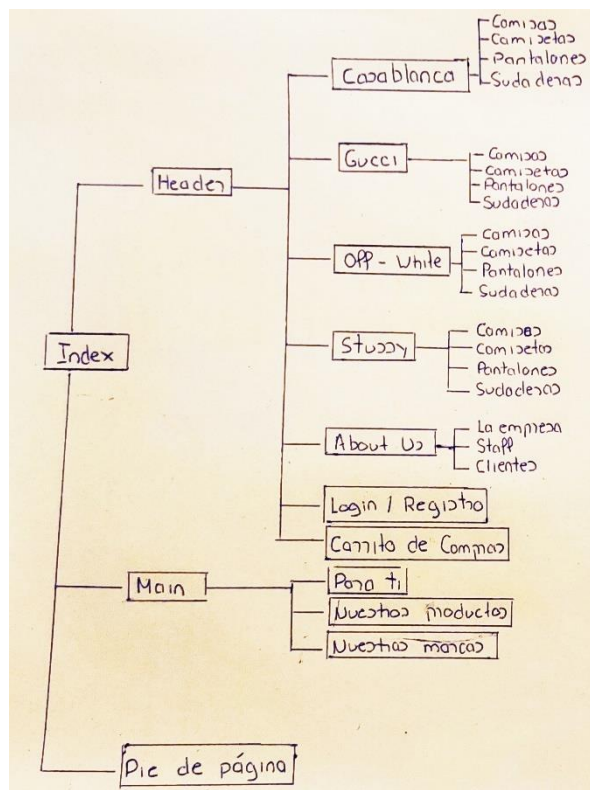 Camisas
Camisetas
Pantalones
Sudaderas
Casablanca
Header
Gucci
Camisas
Camisetas
Pantalones
Sudaderas
Off - White
Camisas
Camisetas
Pantalones
Sudaderas
Index
Stussy
Camisas
Camisetas
Pantalones
Sudaderas
About Us
La empresa
Staff
Clientes
Login / Registro
Carrito de Compras
Main
Para ti
Nuestros productos
Nuestras marcas
Pie de página